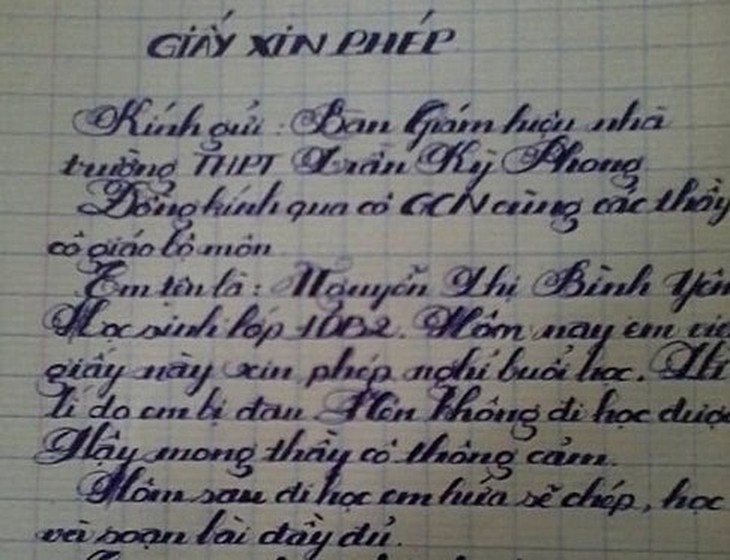 GIẤY XIN PHÉP
Kính gửi : Ban Giám hiệu nhà
trường THPT Trần Kỳ Phong
Đồng kính qua cô GCN cùng các thầy
cô giáo bộ môn
Em tên là : Nguyễn Thị Bình Yên
Học sinh lớp 10B2. Hôm nay em
giấy này xin phép nghỉ buổi học.
lí do em bị đau Nên không đi học được
Vậy mong thầy cô thông cảm.
Hôm sau đi học em hứa sẽ chép, học
và soạn bài đầy đủ.